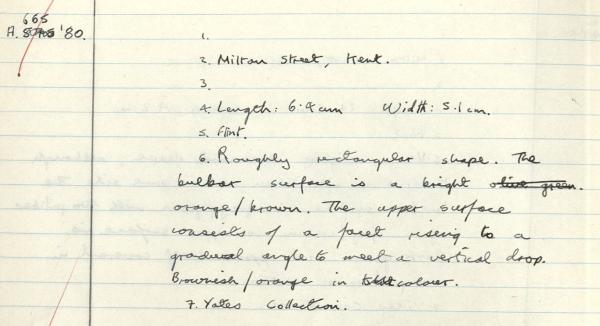 665
A. '80.
1.
2. Milton Street, Kent.
3.
4. Length: 6.4cm Width: 5.1cm.
5. Flint.
6. Roughly rectangular shape. The
bulbar surface is a bright olive green.
orange/brown. The upper surface
consists of a facet rising to a
gradual angle to meet a vertical drop.
Brownish/orange in colour.
7. Yates Collection.